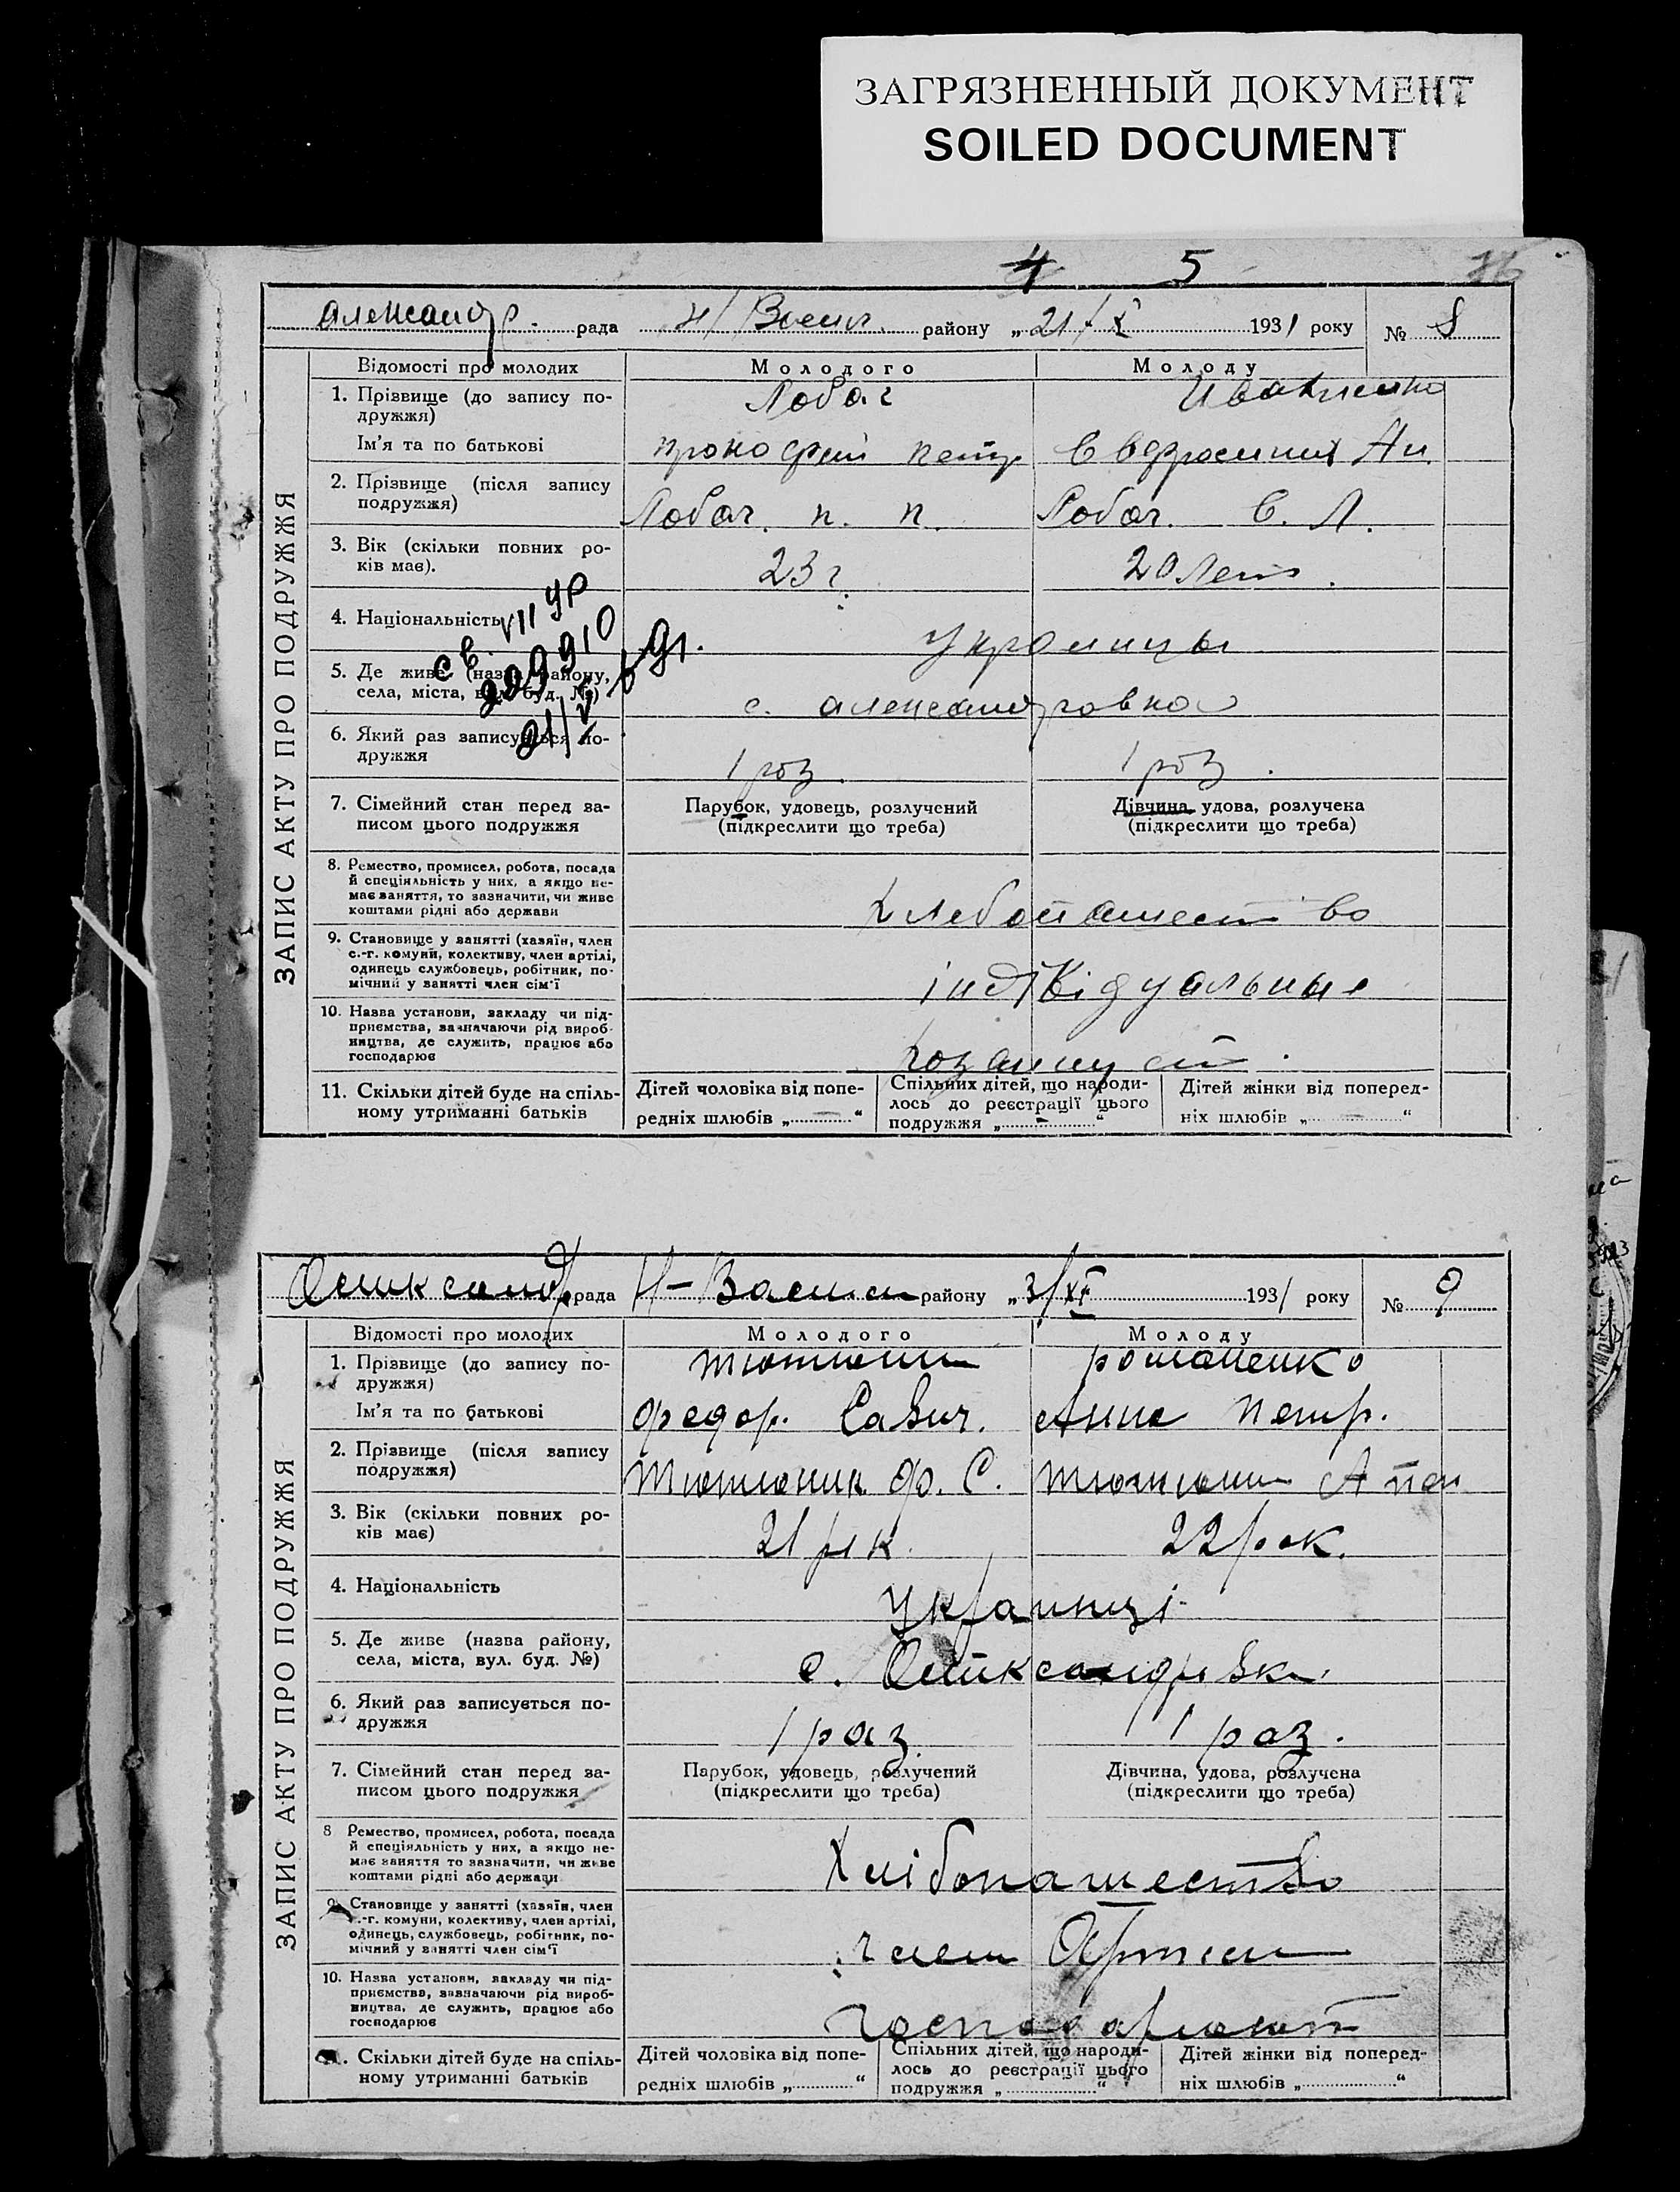 ЗАГРЯЗНЕННЫЙ ДОКУМЕНТ
SOILED DOCUMENT
4 5
Александр. рада Н/Васил. району „21/X 1931 року № 8
ЗАПИС АКТУ ПРО ПОДРУЖЖЯ
Відомості про молодих Молодого Молоду
1. Прізвище (до запису по-
дружжя)
Лобач
Ім'я та по батькові
Прокофий Петр
2. Прізвище (після запису
подружжя)
Лобач. П. П. Лобач. Е. Л.
3. Вік (скільки повних ро-
ків має).
23 г. 20 Лет.
4. Національність
Украинцы
св. VII УР
5. Де живе (назва району,
села, міста, вул. буд. №)
с. Александровка
6. Який раз записується по-
дружжя
1 раз. 1 раз.
7. Сімейний стан перед за-
писом цього подружжя
Парубок, удовець, розлучений
(підкреслити що треба)
Дівчина, удова, розлучена
(підкреслити що треба)
8. Ремество, промисел, робота, посада
й спеціяльність у них, а якщо не-
має заняття, то зазначити, чи живе
коштами рідні або держави
Хлебопашество
9. Становище у занятті (хазяїн, член
с.-г. комуни, колективу, член артілі,
одинець службовець, робітник, по-
мічний у занятті член сім'ї
10. Назва установи, закладу чи під-
приємства, зазначаючи рід вироб-
ництва, де служить, працює або
господарює
11. Скільки дітей буде на спіль-
ному утриманні батьків
Дітей чоловіка від попе-
редніх шлюбів „ — “
Спільних дітей, що народи-
лось до реєстрації цього
подружжя „ - “
Дітей жінки від поперед-
ніх шлюбів „ — “
Олександр рада Н-Васил району „3/XI 1931 року № 9
ЗАПИС АКТУ ПРО ПОДРУЖЖЯ
Відомості про молодих Молодого Молоду
1. Прізвище (до запису по-
дружжя)
Тютюник Романенко
Ім'я та по батькові
Федор. Савич. Анна Петр.
2. Прізвище (після запису
подружжя)
Тютюник Ф. С. Тютюник А
3. Вік (скільки повних ро-
ків має)
21 рік. 22 рок.
4. Національність
Українці
5. Де живе (назва району,
села, міста, вул. буд. №)
с. Олександрівка
6. Який раз записується по-
дружжя
1 раз. 1 раз.
7. Сімейний стан перед за-
писом цього подружжя
Парубок, удовець, розлучений
(підкреслити що треба)
Дівчина, удова, розлучена
(підкреслити що треба)
8 Ремество, промисел, робота, посада
й спеціяльність у них, а якщо не-
має заняття то зазначити, чи живе
коштами рідні або держави
Хлібопашество
9. Становище у занятті (хазяїн, член
с.-г. комуни, колективу, член артілі,
одинець, службовець, робітник, по-
мічний у занятті член сім'ї
член Артели
10. Назва установи, закладу чи під-
приємства, зазначаючи рід вироб-
ництва, де служить, працює або
господарює
господарюют
. Скільки дітей буде на спіль-
ному утриманні батьків
Дітей чоловіка від попе-
редніх шлюбів „ “
Спільних дітей, що народи-
лось до реєстрації цього
подружжя „ “
Дітей жінки від поперед-
ніх шлюбів „ “